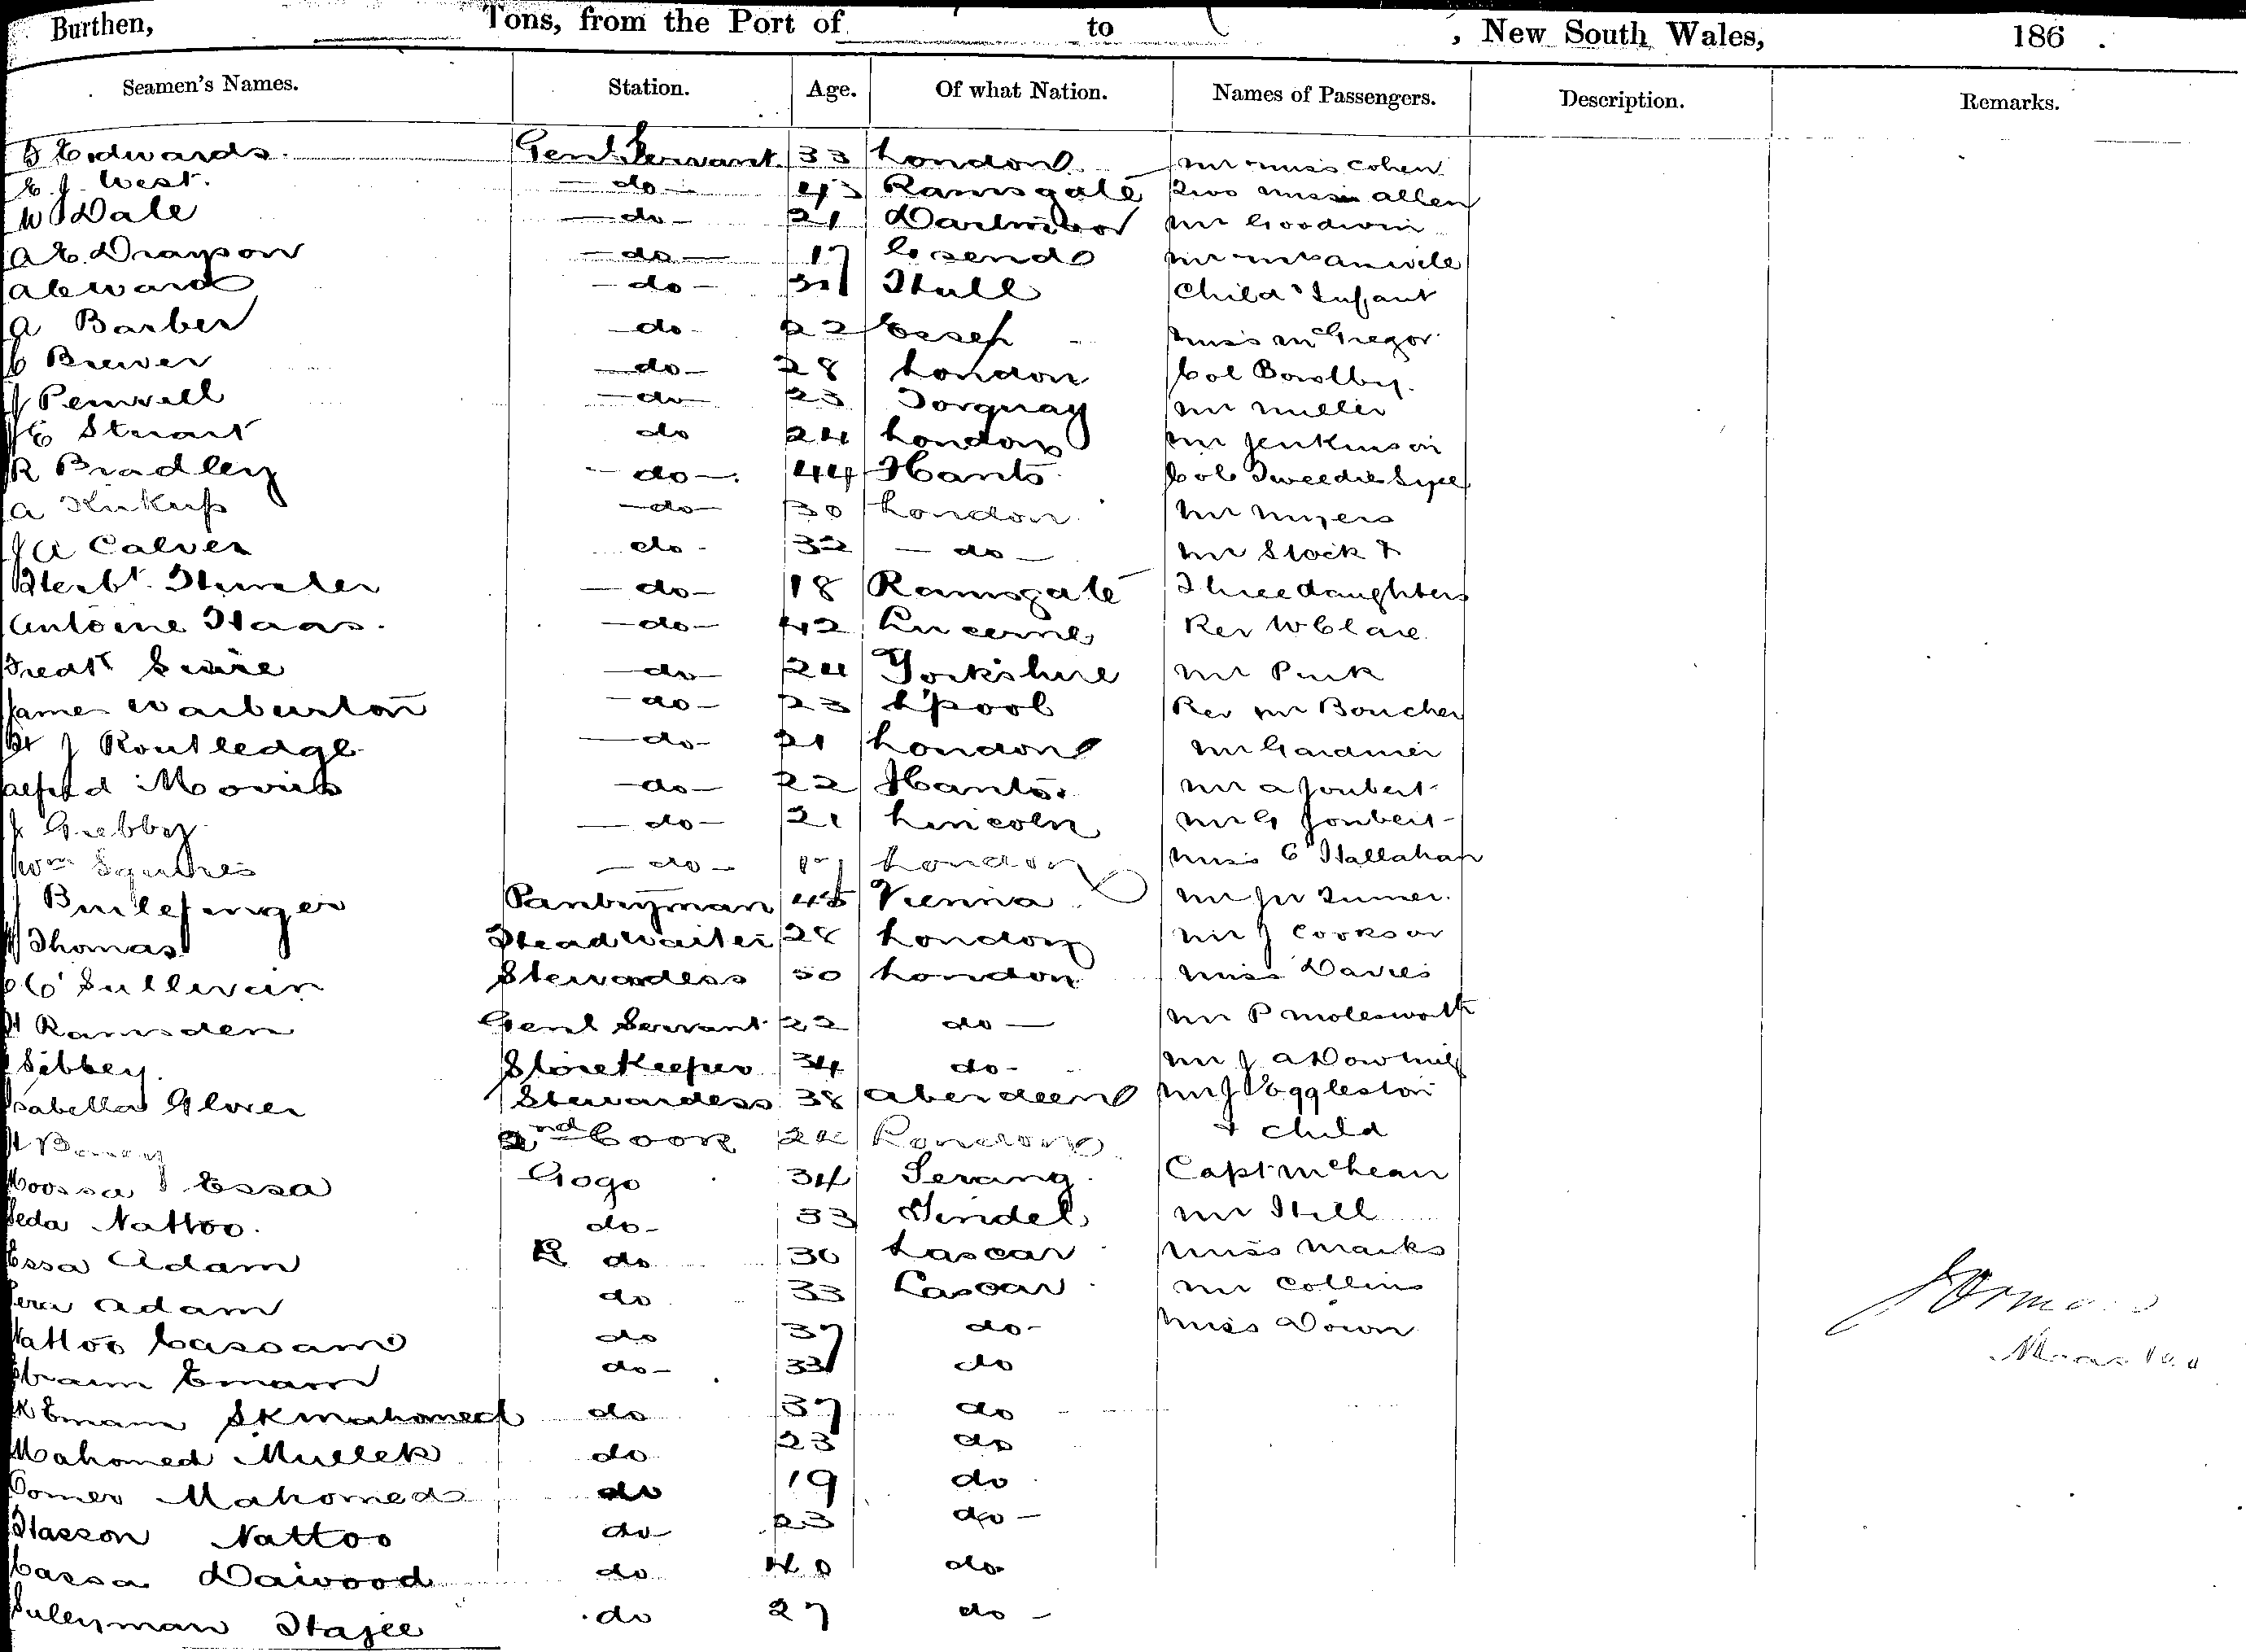 Burthen, Tons, from the Port of to , New South Wales, 186 .
Seamen's Names. Station. Age. Of what Nation. Names of Passengers. Description. Remarks.
Edwards. Genl Servant 33 London Mr Miss Cohen
E. J. West. do 43 Ramsgate Two Misses Allen
W Dale do 21 Mr Goodwin
A E. Drayson do 17 Mr
A E Ward do 31 Hull Child & Infant
A Barber do 22 Essex Miss McGregor
C Brewer do 28 London Col Bowlby.
J Penwell do 23 Torquay Mr Miller
E Stuart do 24 London Mr Jenkinson
R Bradley do 44 Hants Col Tweedie
A Kirkup do 30 London Mr Myers
J A Calver do 32 do Mr Stock &
Herbt. Hunter do 18 Ramsgate Three daughters
Antoine Haas. do 42 Lucerne Rev W Clare
Fredk do 24 Yorkshire Mr
James Warburton do 23 L'pool Rev Mr Boucher
H J Routledge do 21 London Mr Gardiner
Alfred Morris do 22 Hants. Mr A Joubert
J Grebby do 21 Lincoln Mr G Joubert
Wm Squires do 17 London Miss O'Hallahan
Pantryman 45 Vienna Mr Jn Turner.
Thomas Head Waiter 28 London Mr J Cookson
O'Sullivan Stewardess 30 London Miss Davies
H Ramsden Genl Servant 22 do Mr P Molesworth
Sibbey. Storekeeper 34 do Mr J A Dowling
Isabella Glover Stewardess 38 Aberdeen Mr J Eggleston
H 2nd Cook London & child
Moossa Essa Gogo 34 Serang. Capt McLean
Seda Nattoo. do 33 Tindel Mr Hill
Essa Adam do 30 Lascar Miss Marks
Adam do 33 Lascar Mr Collins
Nattoo Cassam do 37 do Miss Down
Emam do 33 do
Emam SK Mahomed do 37 do
Mahomed Mullek do 23 do
Oomer Mahomed do 19 do
Hasson Nattoo do 23 do
Cassa Dawood do 40 do
Suleyman Hajee do 27 do